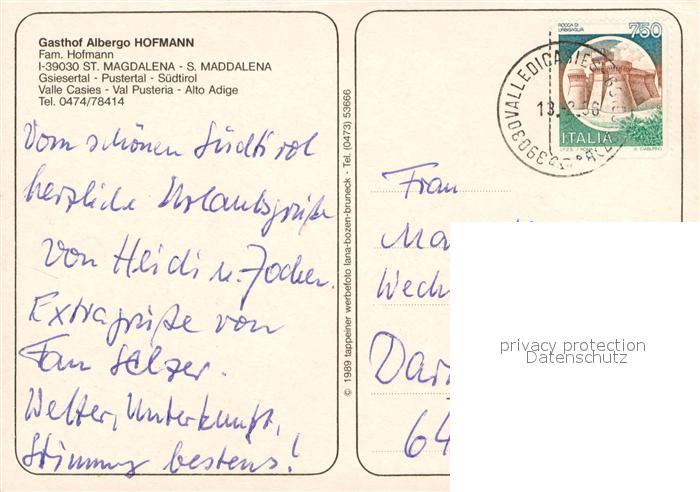 Gasthof Albergo HOFMANN
Fam. Hofmann
I-39030 ST. MAGDALENA - S. MADDALENA
Gsiesertal - Pustertal - Südtirol
Valle Casies - Val Pusteria - Alto Adige
Tel. 0474/78414
Vom schönen Südtirol
herzliche Urlaubsgrüße
von Heidi u. Jochen.
Extragrüße von
Fam Selzer.
Wetter, Unterkunft,
Stimmung bestens!
© 1989 tappeiner werbefoto lana-bozen-bruneck - Tel. (0473) 53666
ROCCA DI
URBISAGLIA
750
ITALIA
39030 VALLE DI CASIES
Frau
Ma
Wech
Dar
64
privacy protection
Datenschutz